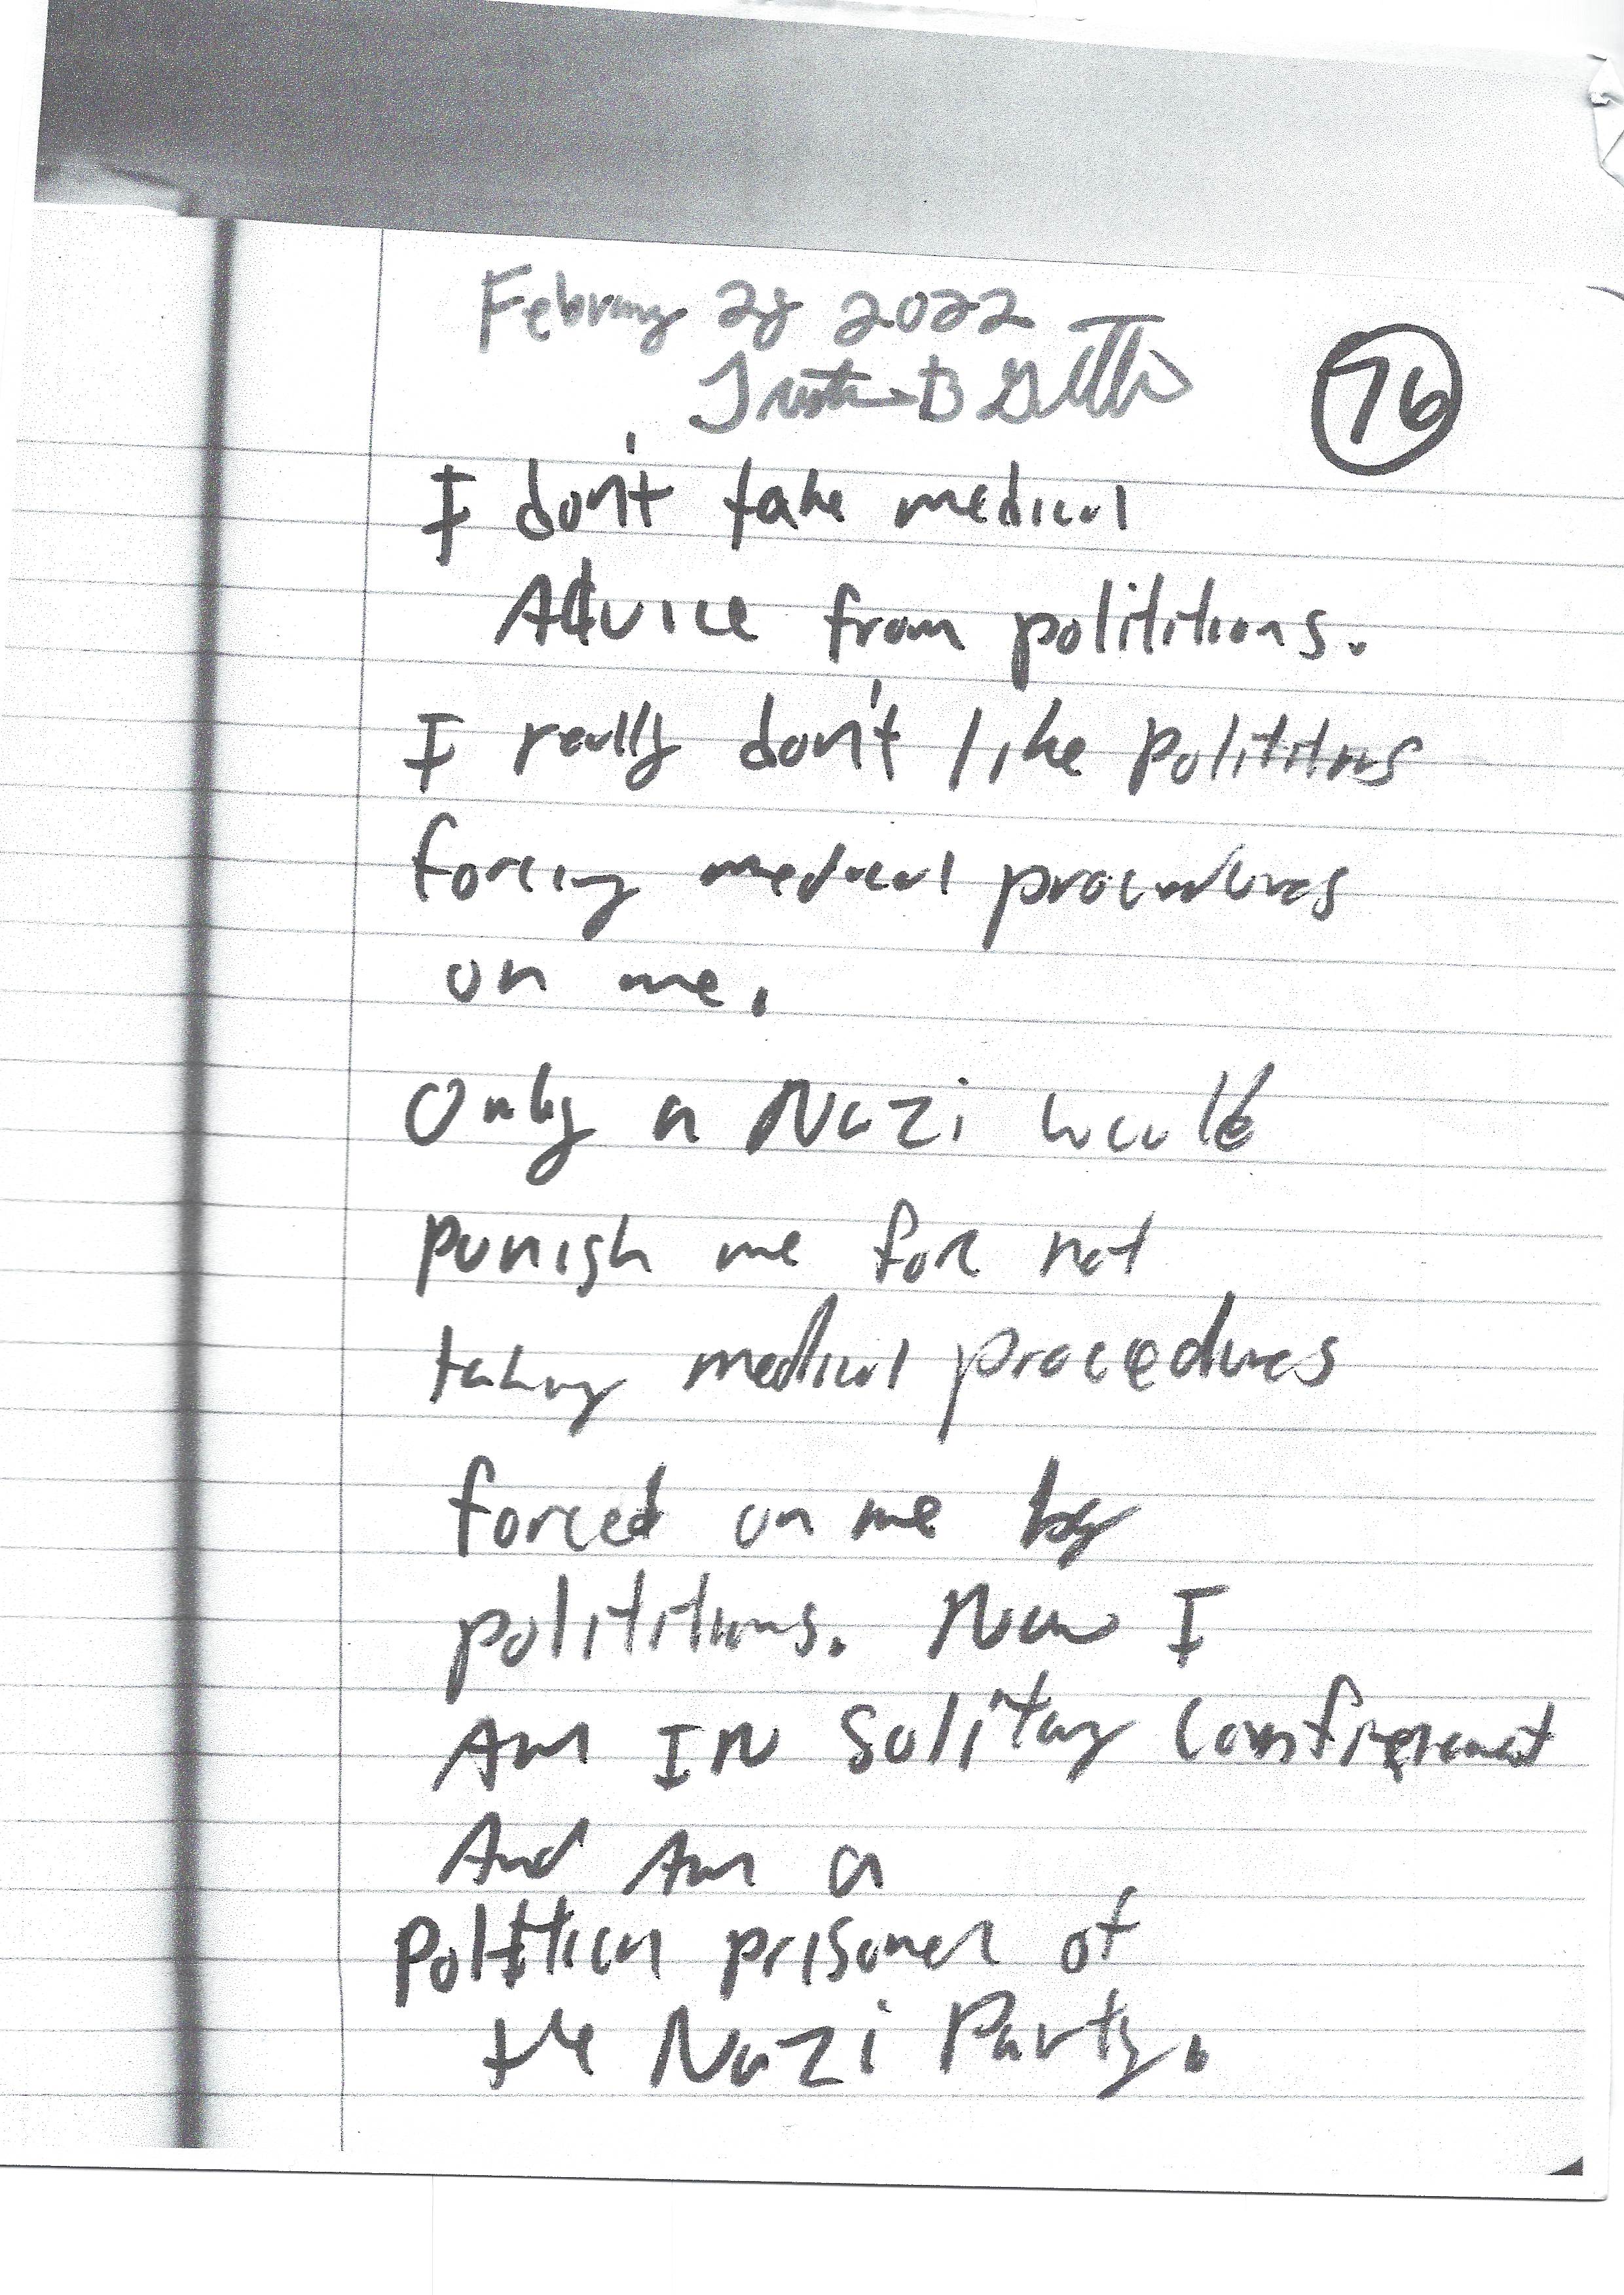 February 28 2022
76
I don't take medical
Advice from polititions.
I really don't like polititions
forcing medical procedures
on me.
Only a Nazi would
punish me for not
taking medical procedures
forced on me by
polititions. Now I
Am IN Solitary confinement
And Am a
prisoner of
the Nazi Party.